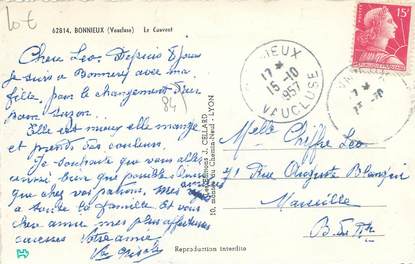 Lot
62814. BONNIEUX (Vaucluse) Le Couvent
Chere Leo. Depuis 8 jours
je suis a Bonnieux avec ma
fille, pour le changement d'air
84)
Elle est mieux elle mange
et prends des couleurs.
Je souhaite que vous allez
aussi bien que possible
que chez vos
a toute la famille Et vous
chere amie mes plus affectueuses
caresses Votre amie
Editions J. CELLARD
10, montée du Chemin-Neuf - LYON
Reproduction interdite
15F
BONNIEUX
17 H
15-10
1957
VAUCLUSE
Melle Chiffre Leo
71 Rue Auguste Blanqui
Marseille
B. d. Rh